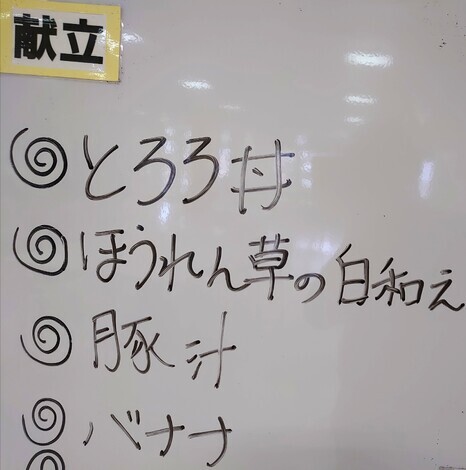 献立
とろろ丼
ほうれん草の白和え
豚汁
バナナ